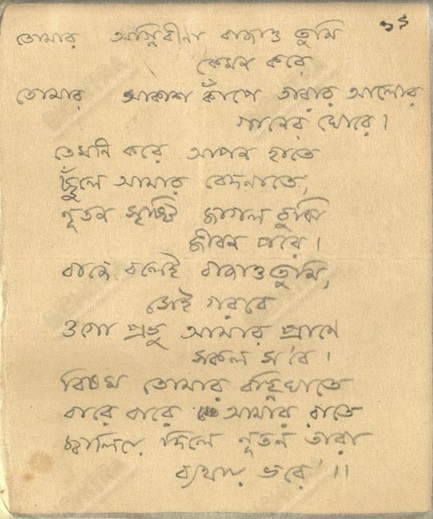 ১১
তোমার অগ্নিবীনা বাজাও তুমি
কেমন করে
তোমার আকাশ কাঁপে তারার আলোর
গানের ঘোরে।
তেমনি করে আপন হাতে
ছুঁলে আমার বেদনাতে,
নূতন সৃষ্টি জাগল বুঝি
জীবন পরে।
বাজে বলেই বাজাও তুমি,
সেই গরবে
ওগো প্রভু আমার প্রাণে
সকল স'বে।
বিষম তোমার বহ্নিঘাতে
বারে বারে আমার রাতে
জ্বালিয়ে দিলে নূতন তারা
ব্যথায় ভরে'।।